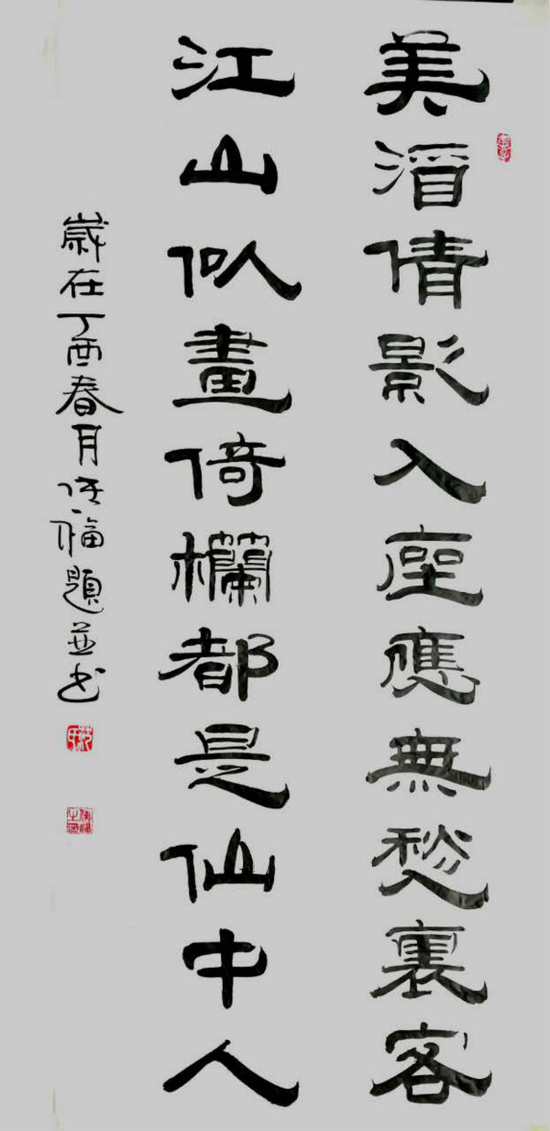 美酒倩影入座應無愁裏客
江山似畫倚欄都是仙中人
歲在丁酉春月福題並书